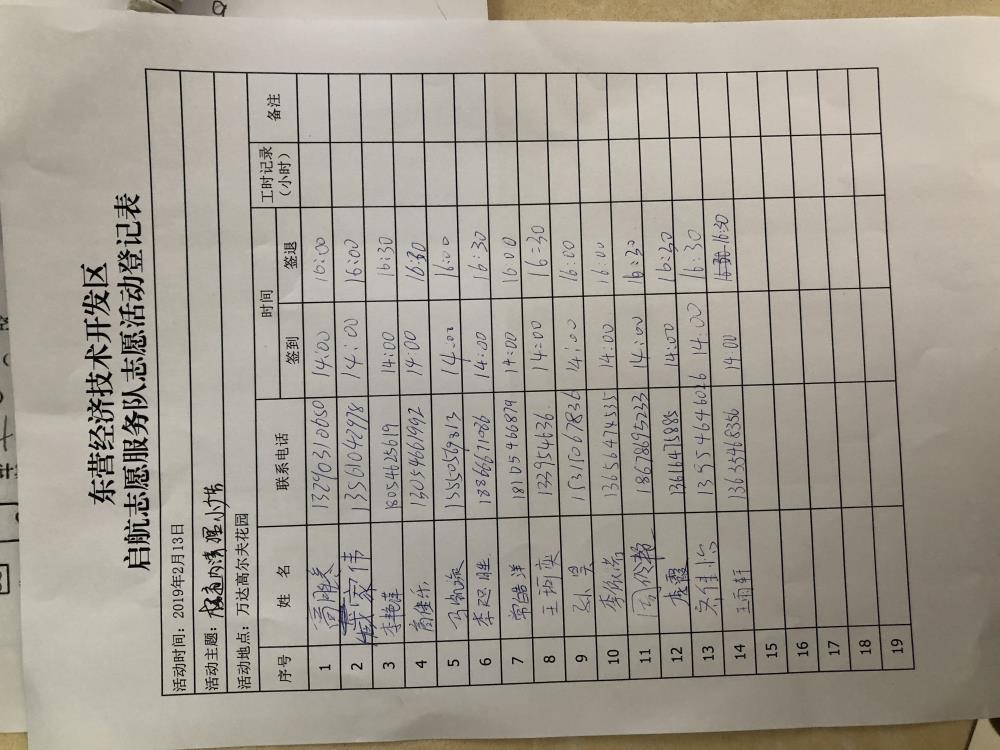 东营经济技术开发区
启航志愿服务队志愿活动登记表
活动时间：2019年2月13日
活动主题：
活动地点：万达高尔夫花园
序号 姓 名 联系电话 时间 工时记录（小时） 备注
签到 签退
1 14:00 16:00
2 臧家伟 13561042978 14:00 16:00
3 李艳萍 18054625619 14:00 16:30
4 高佳乐 13054661992 14:00 16:30
5 14:00 16:00
6 14:00 16:30
7 常皓洋 18105466879 14:00 16:00
8 133954636 14:00 16:30
9 15315067836 14:00 16:00
10 13656474535 14:00 16:00
11 18678695233 14:00 16:30
12 李霞 13616475885 14:00 16:30
13 13954646026 14:00 16:30
14 王雨轩 13635468356 14:00 16:30
15
16
17
18
19